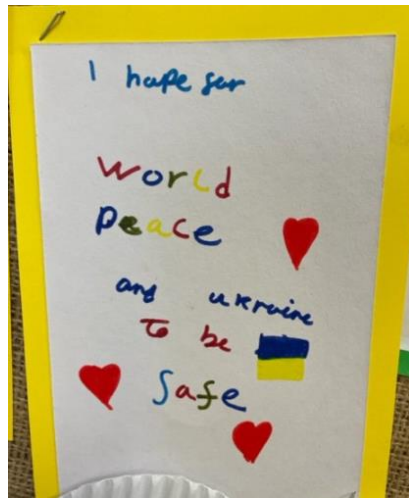 I hope for
world
peace
and ukraine
to be
safe